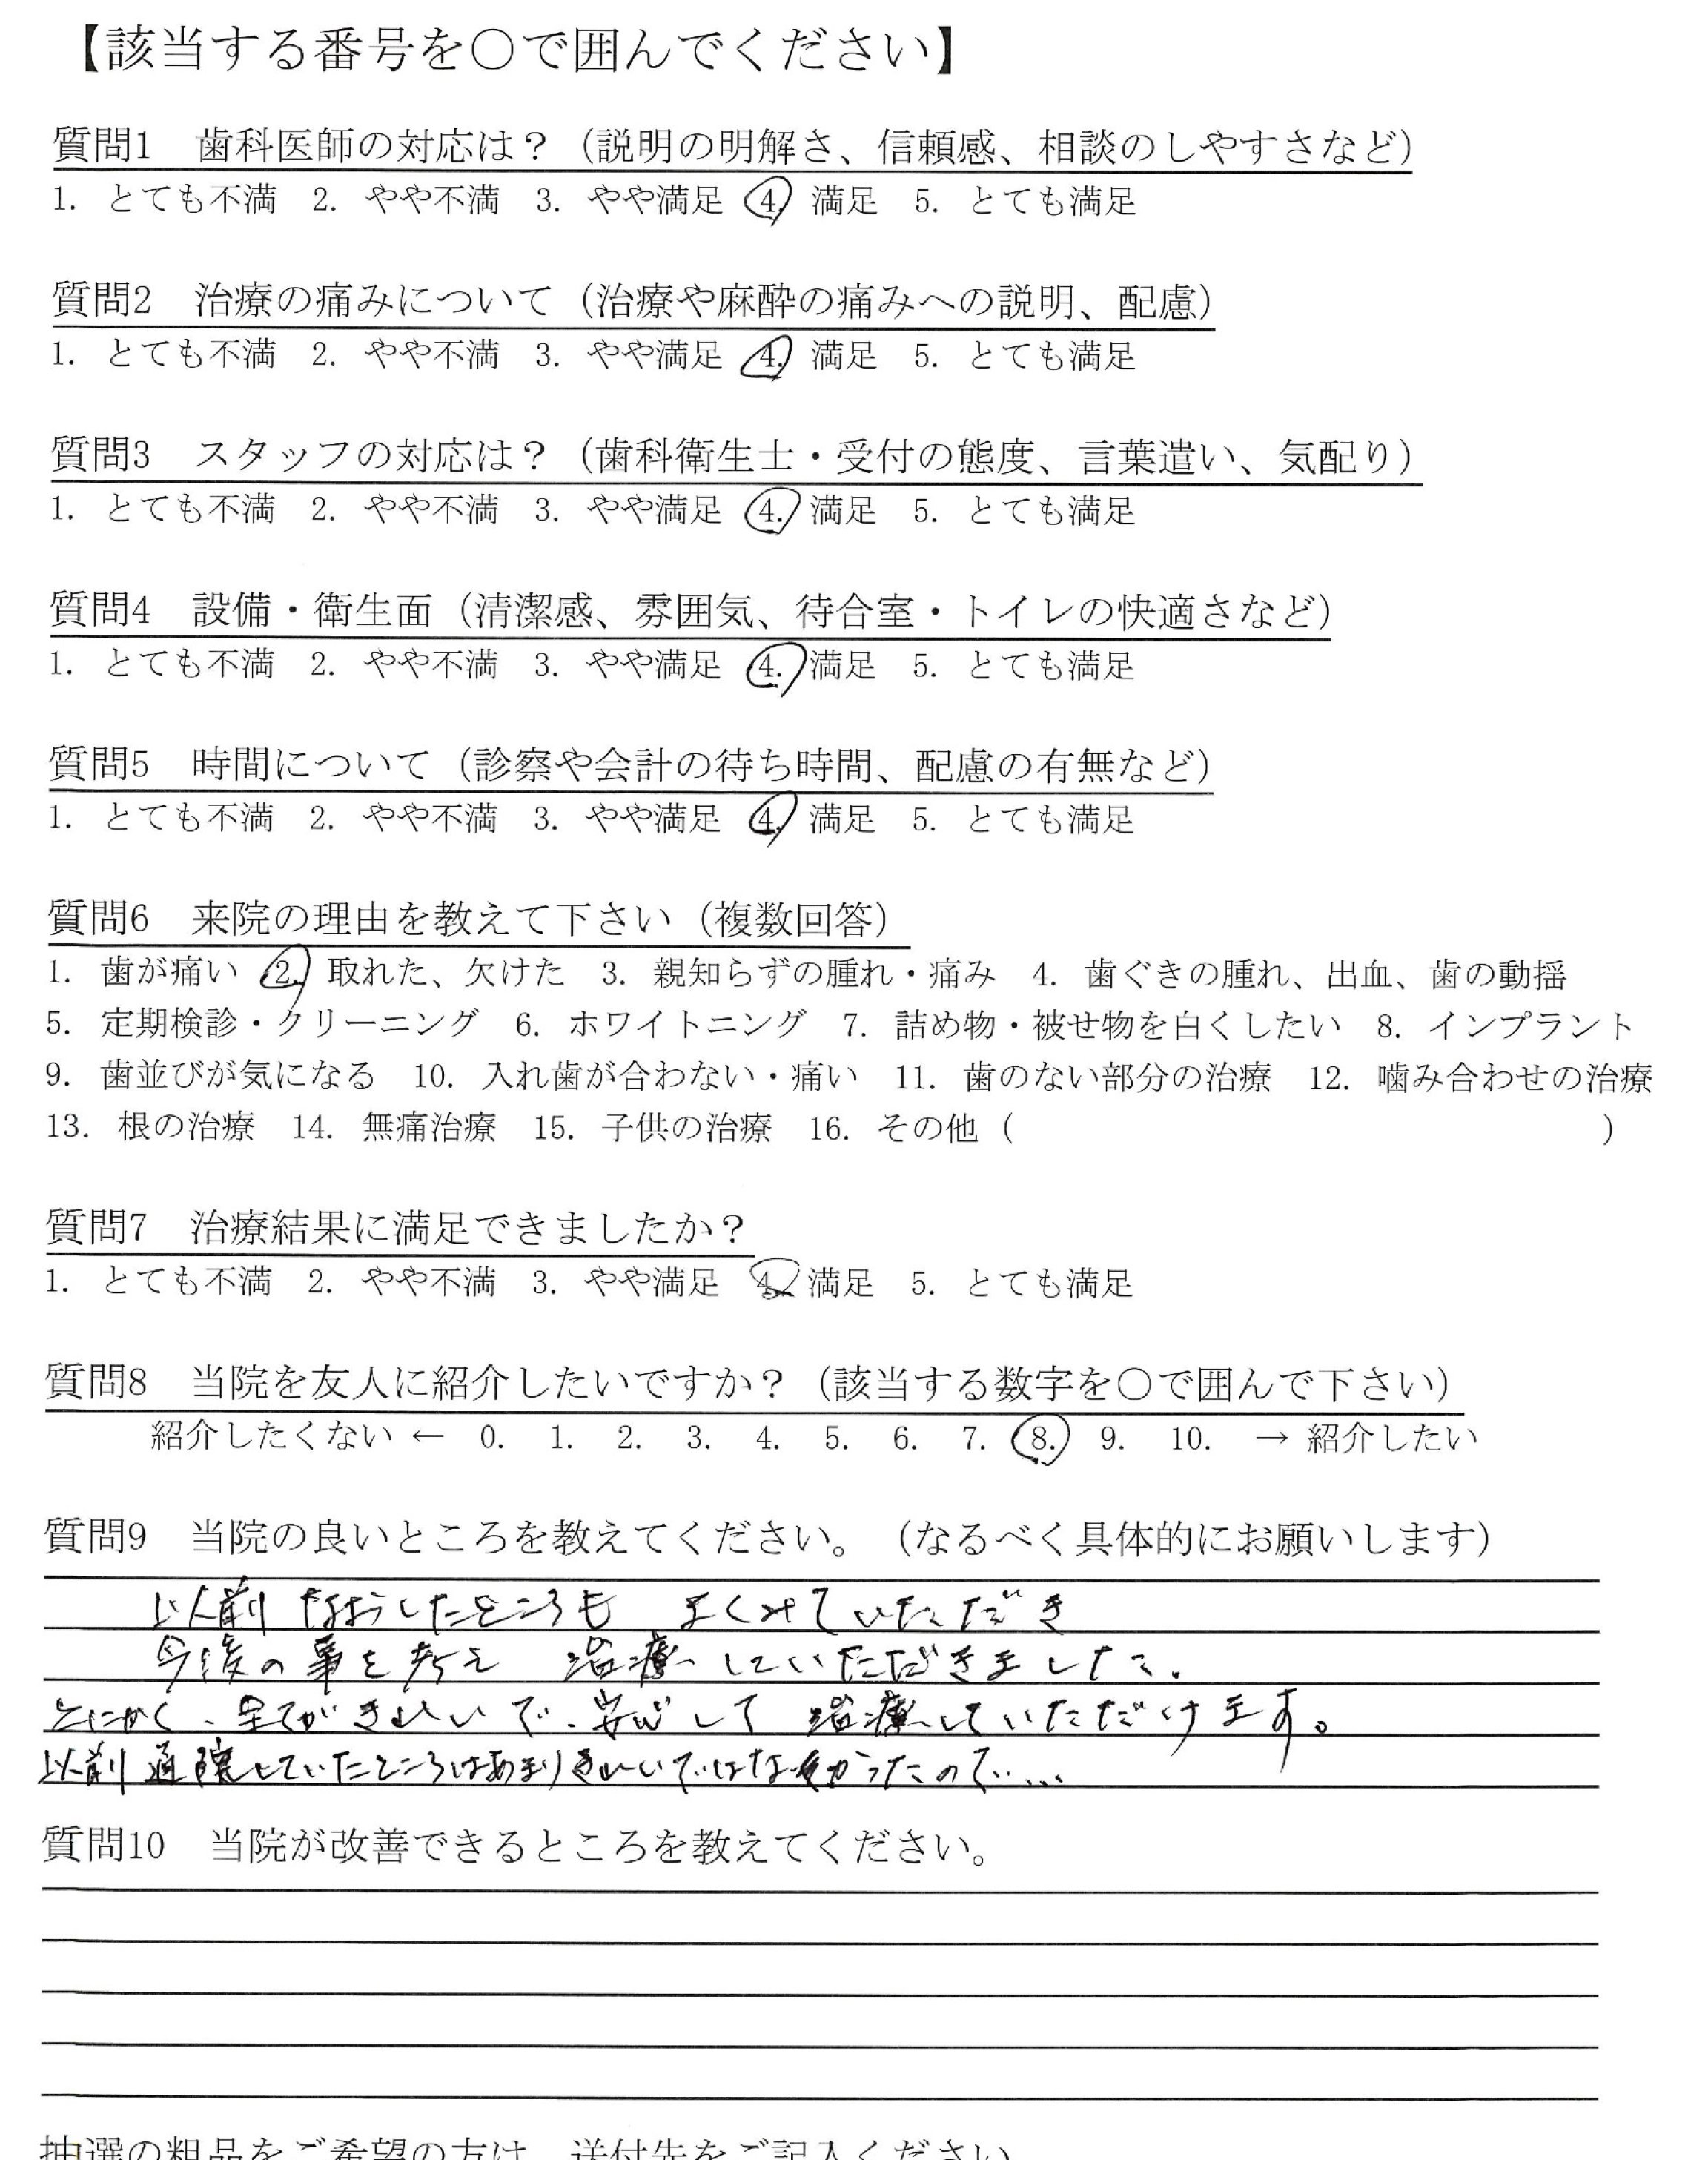 【該当する番号を○で囲んでください】
質問1　歯科医師の対応は？（説明の明解さ、信頼感、相談のしやすさなど）
1. とても不満　2. やや不満　3. やや満足　4. 満足　5. とても満足
質問2　治療の痛みについて（治療や麻酔の痛みへの説明、配慮）
1. とても不満　2. やや不満　3. やや満足　4. 満足　5. とても満足
質問3　スタッフの対応は？（歯科衛生士・受付の態度、言葉遣い、気配り）
1. とても不満　2. やや不満　3. やや満足　4. 満足　5. とても満足
質問4　設備・衛生面（清潔感、雰囲気、待合室・トイレの快適さなど）
1. とても不満　2. やや不満　3. やや満足　4. 満足　5. とても満足
質問5　時間について（診察や会計の待ち時間、配慮の有無など）
1. とても不満　2. やや不満　3. やや満足　4. 満足　5. とても満足
質問6　来院の理由を教えて下さい（複数回答）
1. 歯が痛い　2. 取れた、欠けた　3. 親知らずの腫れ・痛み　4. 歯ぐきの腫れ、出血、歯の動揺
5. 定期検診・クリーニング　6. ホワイトニング　7. 詰め物・被せ物を白くしたい　8. インプラント
9. 歯並びが気になる　10. 入れ歯が合わない・痛い　11. 歯のない部分の治療　12. 噛み合わせの治療
13. 根の治療　14. 無痛治療　15. 子供の治療　16. その他（　　　　　　　　）
質問7　治療結果に満足できましたか？
1. とても不満　2. やや不満　3. やや満足　4. 満足　5. とても満足
質問8　当院を友人に紹介したいですか？（該当する数字を○で囲んで下さい）
紹介したくない ← 0.　1.　2.　3.　4.　5.　6.　7.　8.　9.　10.　→ 紹介したい
質問9　当院の良いところを教えてください。（なるべく具体的にお願いします）
以前 なおしたところも よくみていただき
今後の事を考え 治療していただきました。
とにかく、全てがきれいで、安心して 治療していただけます。
以前通院していたところはあまりきれいではなかったので…
質問10　当院が改善できるところを教えてください。
抽選の粗品をご希望の方は、送付先をご記入ください